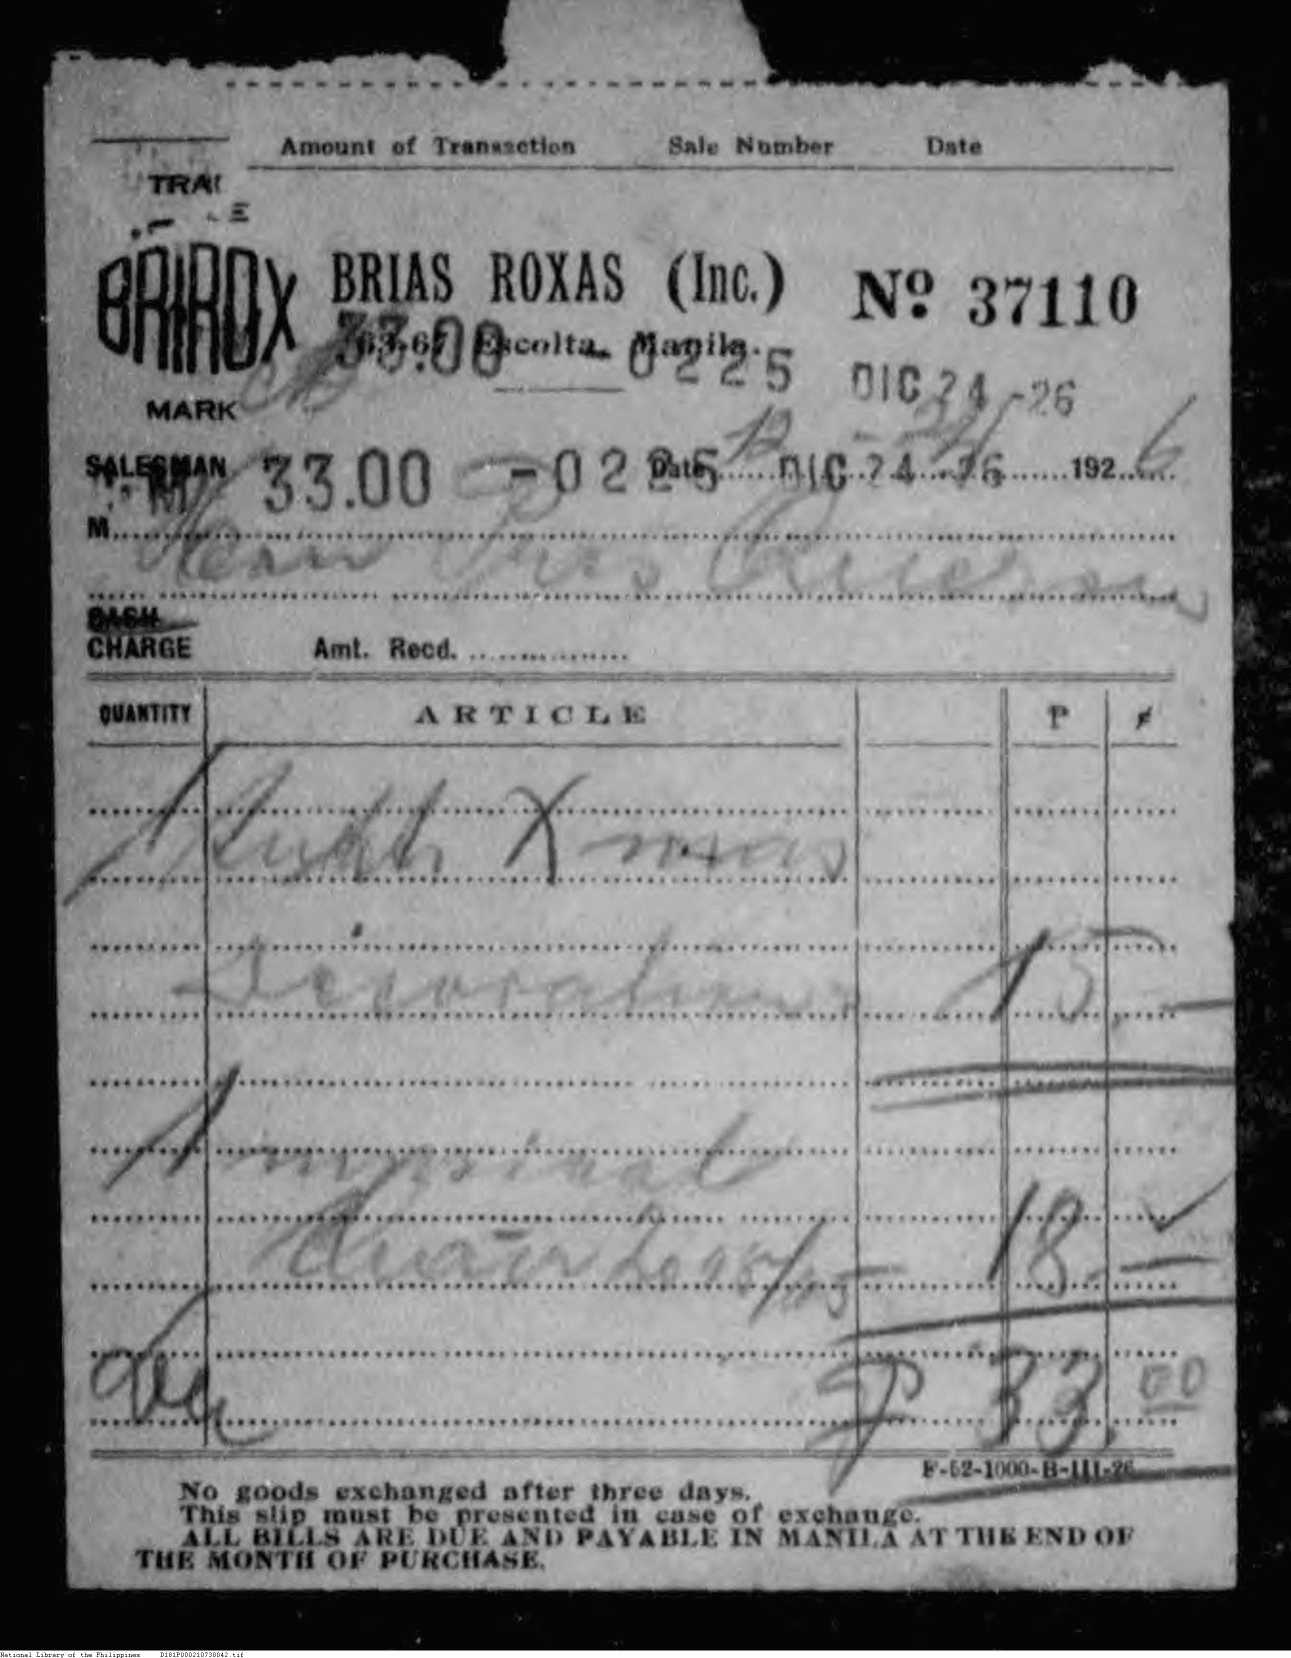 Amount of Transaction Sale Number Date
TRA
E
BRIROX BRIAS ROXAS (Inc.) Nº 37110
33.00 Escolta, Manila. 0225 DIC 24 -26
MARK
SALESMAN 33.00 -0225 Date 12 DIC 24 -26 1926
M
Hon Pres Quezon
CASH
CHARGE Amt. Recd.
QUANTITY ARTICLE P ¢
1 Xmas
Decorations 15.—
1 
18.—
P 33.00
F-52-1000-B-III-26
No goods exchanged after three days.
This slip must be presented in case of exchange.
ALL BILLS ARE DUE AND PAYABLE IN MANILA AT THE END OF
THE MONTH OF PURCHASE.
National Library of the Philippines D181P000210738042.tif